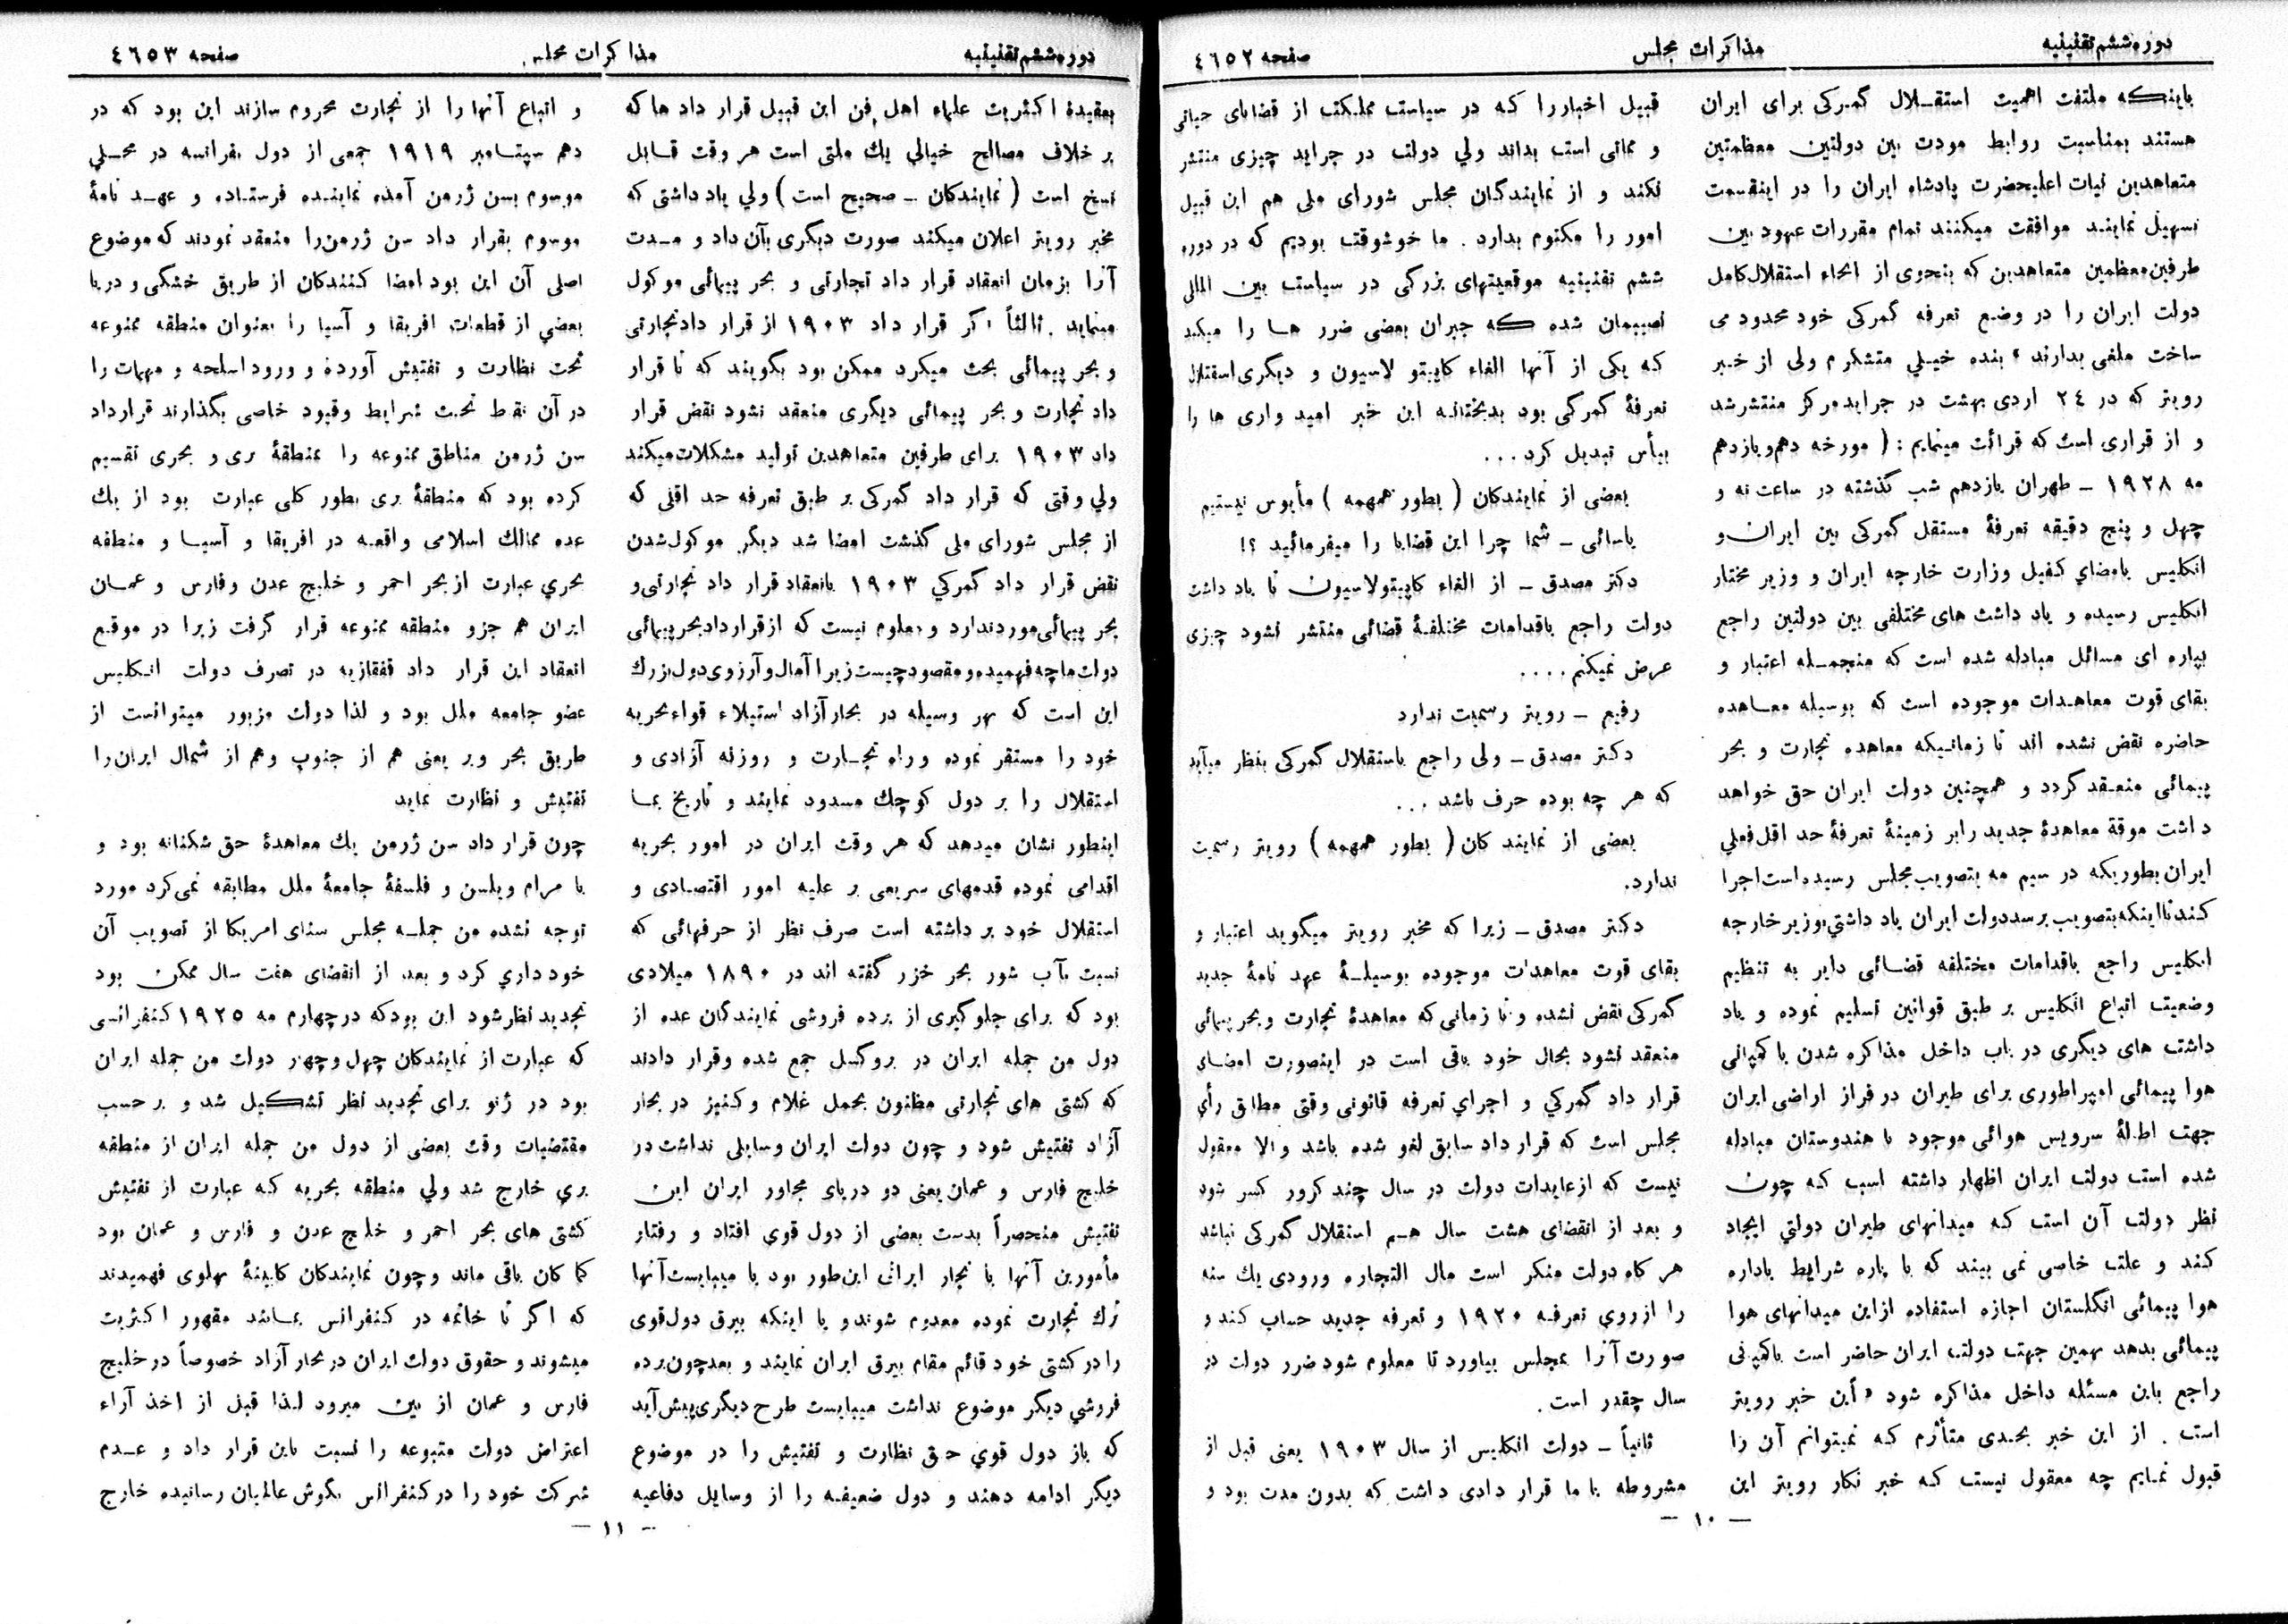 دوره ششم تقنینیه
مذاکرات مجلس
صفحه ٤٦٥٢
باینکه ملتفت اهمیت استقلال گمرکی برای ایران
هستند بمناسبت روابط مودت بین دولتین معظمتین
متعاهدین نیات اعلیحضرت پادشاه ایران را در اینقسمت
تسهیل نمایند موافقت میکنند تمام مقررات عهود بین
طرفین معظمین متعاهدین که بنحوی از انحاء استقلال کامل
دولت ایران را در وضع تعرفه گمرکی خود محدود می
ساخت ملغی بدارند » بنده خیلي متشکرم ولی از خبر
رویتر که در ٢٤ اردی بهشت در جراید مرکز منتشر شد
و از قراری است که قرائت مینمایم : ( مورخه دهم و یازدهم
مه ١٩٢٨ – طهران یازدهم شب گذشته در ساعت نه و
چهل و پنج دقیقه تعرفهٔ مستقل گمرکی بین ایران و
انگلیس بامضاي کفیل وزارت خارجه ایران و وزیر مختار
انگلیس رسیده و یاد داشت های مختلفی بین دولتین راجع
بپاره ای مسائل مبادله شده است که منجمله اعتبار و
بقای قوت معاهدات موجوده است که بوسیله معاهده
حاضره نقض نشده اند تا زمانیکه معاهده تجارت و بحر
پیمائی منعقد گردد و همچنین دولت ایران حق خواهد
داشت موقة معاهدهٔ جدید را بر زمینهٔ تعرفهٔ حد اقل فعلي
ایران بطوریکه در سیم مه بتصویب مجلس رسیده است اجرا
کند تا اینکه بتصویب برسد دولت ایران یاد داشتي بوزیر خارجه
انگلیس راجع باقدامات مختلفه قضائی دایر به تنظیم
وضعیت اتباع انگلیس بر طبق قوانین تسلیم نموده و یاد
داشت های دیگری در باب داخل مذاکره شدن با کمپانی
هوا پیمائی امپراطوری برای طیران در فراز اراضی ایران
جهت اطالهٔ سرویس هوائی موجود تا هندوستان مبادله
شده است دولت ایران اظهار داشته است که چون
نظر دولت آن است که میدانهای طیران دولتي ایجاد
کند و علت خاصی نمی بیند که با پاره شرایط باداره
هوا پیمائی انگلستان اجازه استفاده از این میدانهای هوا
پیمائی بدهد بهمین جهت دولت ایران حاضر است با کمپانی
راجع باین مسئله داخل مذاکره شود » این خبر رویتر
است . از این خبر بحدی متأثرم که نمیتوانم آن را
قبول نمایم چه معقول نیست که خبر نگار رویتر این
قبیل اخبار را که در سیاست مملکت از قضایای حیاتی
و مماتی است بداند ولي دولت در جراید چیزی منتشر
نکند و از نمایندگان مجلس شورای ملی هم این قبیل
امور را مکتوم بدارد . ما خوشوقت بودیم که در دوره
ششم تقنینیه موقعیتهای بزرگی در سیاست بین المللی
نصیبمان شده که جبران بعضی ضرر ها را میکند
که یکی از آنها الغاء کاپیتو لاسیون و دیگری استقلال
تعرفهٔ گمرگی بود بدبختانه این خبر امید واری ها را
بیأس تبدیل کرد ...
بعضی از نمایندکان ( بطور همهمه ) مأیوس نیستیم
یاسائی – شما چرا این قضایا را میفرمائید ؟!
دکتر مصدق – از الغاء کاپیتولاسیون تا یاد داشت
دولت راجع باقدامات مختلفهٔ قضائی منتشر نشود چیزی
عرض نمیکنم ....
رفیع – رویتر رسمیت ندارد
دکتر مصدق – ولی راجع باستقلال گمرکی بنظر میآید
که هر چه بوده حرف باشد ...
بعضی از نمایند کان ( بطور همهمه ) رویتر رسمیت
ندارد.
دکتر مصدق – زیرا که مخبر رویتر میگوید اعتبار و
بقای قوت معاهدات موجوده بوسیلهٔ عهد نامهٔ جدید
گمرکی نقض نشده و تا زمانی که معاهدهٔ تجارت و بحر پیمائی
منعقد نشود بحال خود باقی است در اینصورت امضای
قرار داد گمرکي و اجراي تعرفه قانونی وقتی مطابق رأي
مجلس است که قرار داد سابق لغو شده باشد والا معقول
نیست که از عایدات دولت در سال چند کرور کسر شود
و بعد از انقضای هشت سال هم استقلال گمرکی نباشد
هر گاه دولت منکر است مال التجاره ورودی یك سنه
را از روي تعرفه ١٩٢٠ و تعرفه جدید حساب کند و
صورت آنرا بمجلس بیاورد تا معلوم شود ضرر دولت در
سال چقدر است .
ثانیاً – دولت انگلیس از سال ١٩٠٣ یعنی قبل از
مشروطه با ما قرار دادی داشت که بدون مدت بود و
– ١٠ –
دوره ششم تقنینیه
مذاکرات مجلس
صفحه ٤٦٥٣
بعقیدهٔ اکثریت علماء اهل فن این قبیل قرار داد ها که
بر خلاف مصالح خیالي یك ملتی است هر وقت قابل
نسخ است ( نمایندکان – صحیح است ) ولي یاد داشتی که
مخبر رویتر اعلان میکند صورت دیگری بآن داد و مدت
آنرا بزمان انعقاد قرار داد تجارتی و بحر پیمائی موکول
مینماید . ثالثاً اگر قرار داد ١٩٠٣ از قرار داد تجارتی
و بحر پیمائی بحث میکرد ممکن بود بگویند که تا قرار
داد تجارت و بحر پیمائی دیگری منعقد نشود نقض قرار
داد ١٩٠٣ برای طرفین متعاهدین تولید مشکلات میکند
ولي وقتی که قرار داد گمرکی بر طبق تعرفه حد اقلی که
از مجلس شورای ملی گذشت امضا شد دیگر موکول شدن
نقض قرار داد گمرکي ١٩٠٣ بانعقاد قرار داد تجارتی و
بحر پیمائی مورد ندارد و معلوم نیست که از قرار داد بحر پیمائی
دولت ما چه فهمیده و مقصود چیست زیرا آمال و آرزوی دول بزرك
این است که بهر وسیله در بحار آزاد استیلاء قواء بحریه
خود را مستقر نموده و راه تجارت و روزنه آزادی و
استقلال را بر دول کوچك مسدود نمایند و تاریخ بما
اینطور نشان میدهد که هر وقت ایران در امور بحریه
اقدامی نموده قدمهای سریعی بر علیه امور اقتصادی و
استقلال خود بر داشته است صرف نظر از حرفهائی که
نسبت بآب شور بحر خزر گفته اند در ١٨٩٠ میلادی
بود که برای جلوگیری از برده فروشی نمایندگان عده از
دول من جمله ایران در بروکسل جمع شده و قرار دادند
که کشتی های تجارتی مظنون بحمل غلام و کنیز در بحار
آزاد تفتیش شود و چون دولت ایران وسایلی نداشت در
خلیج فارس و عمان یعنی دو دریای مجاور ایران این
تفتیش منحصراً بدست بعضی از دول قوي افتاد و رفتار
مأمورین آنها با تجار ایرانی این طور بود یا میبایست آنها
ترك تجارت نموده معدوم شوند و یا اینکه بیرق دول قوی
را در کشتی خود قائم مقام بیرق ایران نمایند و بعد چون برده
فروشي دیگر موضوع نداشت میبایست طرح دیگری پیش آید
که باز دول قوي حق نظارت و تفتیش را در موضوع
دیگر ادامه دهند و دول ضعیفه را از وسایل دفاعیه
و اتباع آنها را از تجارت محروم سازند این بود که در
دهم سپتامبر ١٩١٩ جمعی از دول بفرانسه در محلي
موسوم بسن ژرمن آمده نماینده فرستاده و عهد نامهٔ
موسوم بقرار داد سن ژرمن را منعقد نمودند که موضوع
اصلی آن این بود امضا کنندکان از طریق خشگی و دریا
بعضي از قطعات افریقا و آسیا را بعنوان منطقه ممنوعه
تحت نظارت و تفتیش آورده و ورود اسلحه و مهمات را
در آن نقاط تحت شرایط و قیود خاصی بگذارند قرارداد
سن ژرمن مناطق ممنوعه را بمنطقهٔ بری و بحری تقسیم
کرده بود که منطقهٔ بری بطور کلی عبارت بود از یك
عده ممالك اسلامی واقعه در افریقا و آسیا و منطقه
بحري عبارت از بحر احمر و خلیج عدن و فارس و عمان
ایران هم جزو منطقه ممنوعه قرار گرفت زیرا در موقع
انعقاد این قرار داد قفقازیه در تصرف دولت انگلیس
عضو جامعه ملل بود و لذا دولت مزبور میتوانست از
طریق بحر و بر یعنی هم از جنوب و هم از شمال ایران را
تفتیش و نظارت نماید
چون قرار داد سن ژرمن یك معاهدهٔ حق شکنانه بود و
با مرام ویلسن و فلسفهٔ جامعهٔ ملل مطابقه نمی کرد مورد
توجه نشده من جمله مجلس سنای امریکا از تصویب آن
خود داري کرد و بعد از انقضای هفت سال ممکن بود
تجدید نظر شود این بود که در چهارم مه ١٩٢٥ کنفرانسی
که عبارت از نمایندکان چهل و چهار دولت من جمله ایران
بود در ژنو برای تجدید نظر تشکیل شد و بر حسب
مقتضیات وقت بعضی از دول من جمله ایران از منطقه
بري خارج شد ولي منطقه بحریه که عبارت از تفتیش
کشتی های بحر احمر و خلیج عدن و فارس و عمان بود
کما کان باقی ماند و چون نمایندکان کابینهٔ پهلوی فهمیدند
که اگر تا خاتمه در کنفرانس بمانند مقهور اکثریت
میشوند و حقوق دولت ایران در بحار آزاد خصوصاً در خلیج
فارس و عمان از بین میرود لذا قبل از اخذ آراء
اعتراض دولت متبوعه را نسبت باین قرار داد و عدم
شرکت خود را در کنفرانس بگوش عالمیان رسانیده خارج
– ١١ –